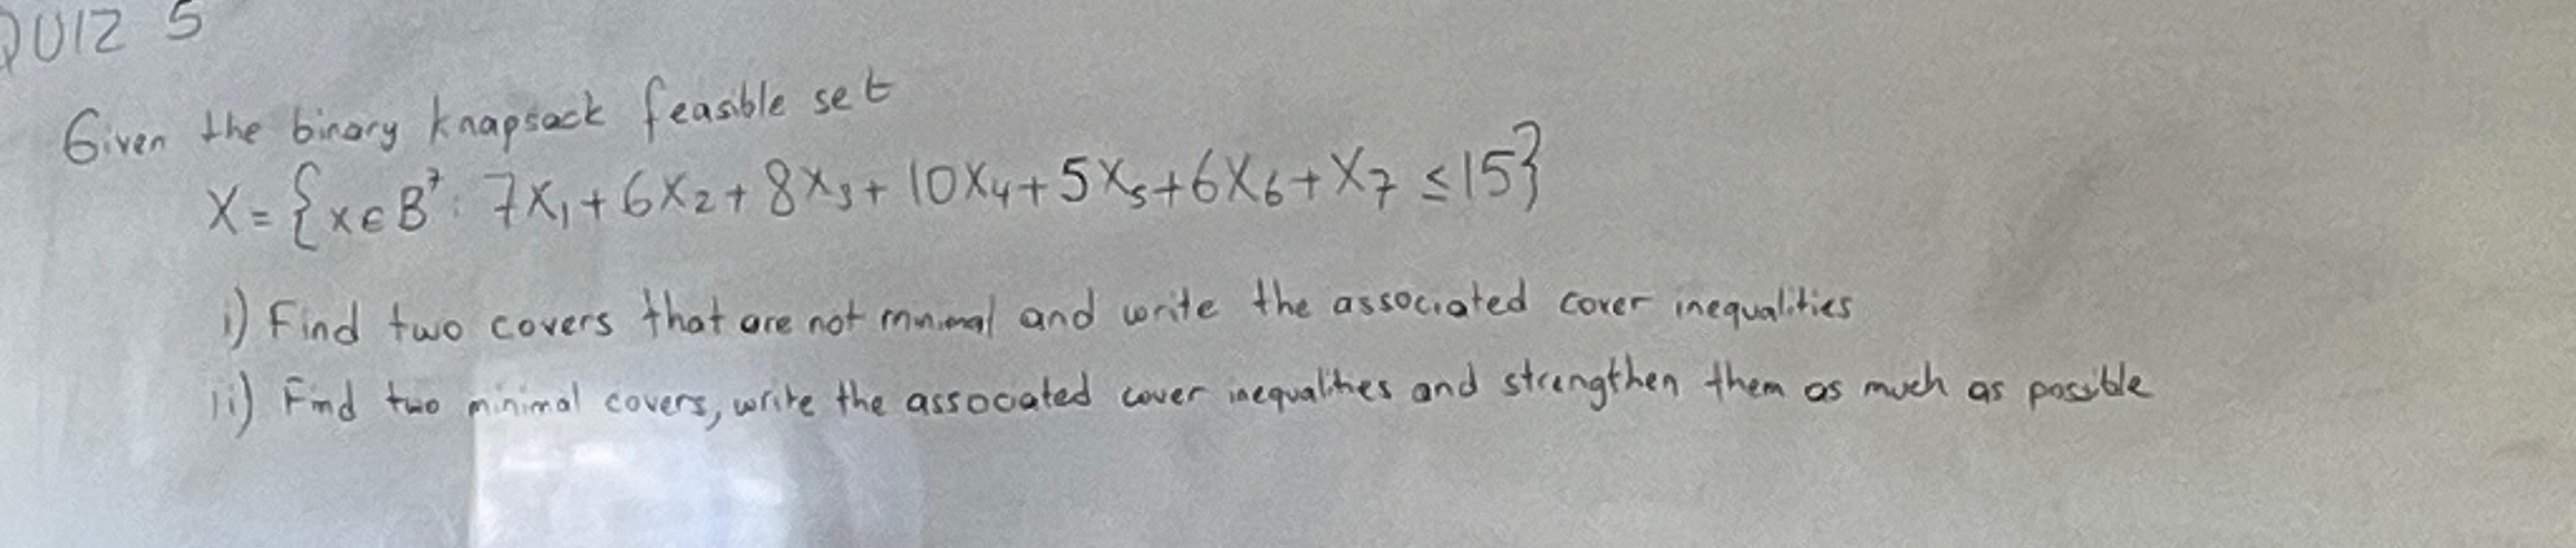 QUIZ 5
Given the binary knapsack feasible set
X = {x ∈ B⁷: 7X₁ + 6X₂ + 8X₃ + 10X₄ + 5X₅ + 6X₆ + X₇ ≤ 15}
i) Find two covers that are not minimal and write the associated cover inequalities
ii) Find two minimal covers, write the associated cover inequalities and strengthen them as much as possible